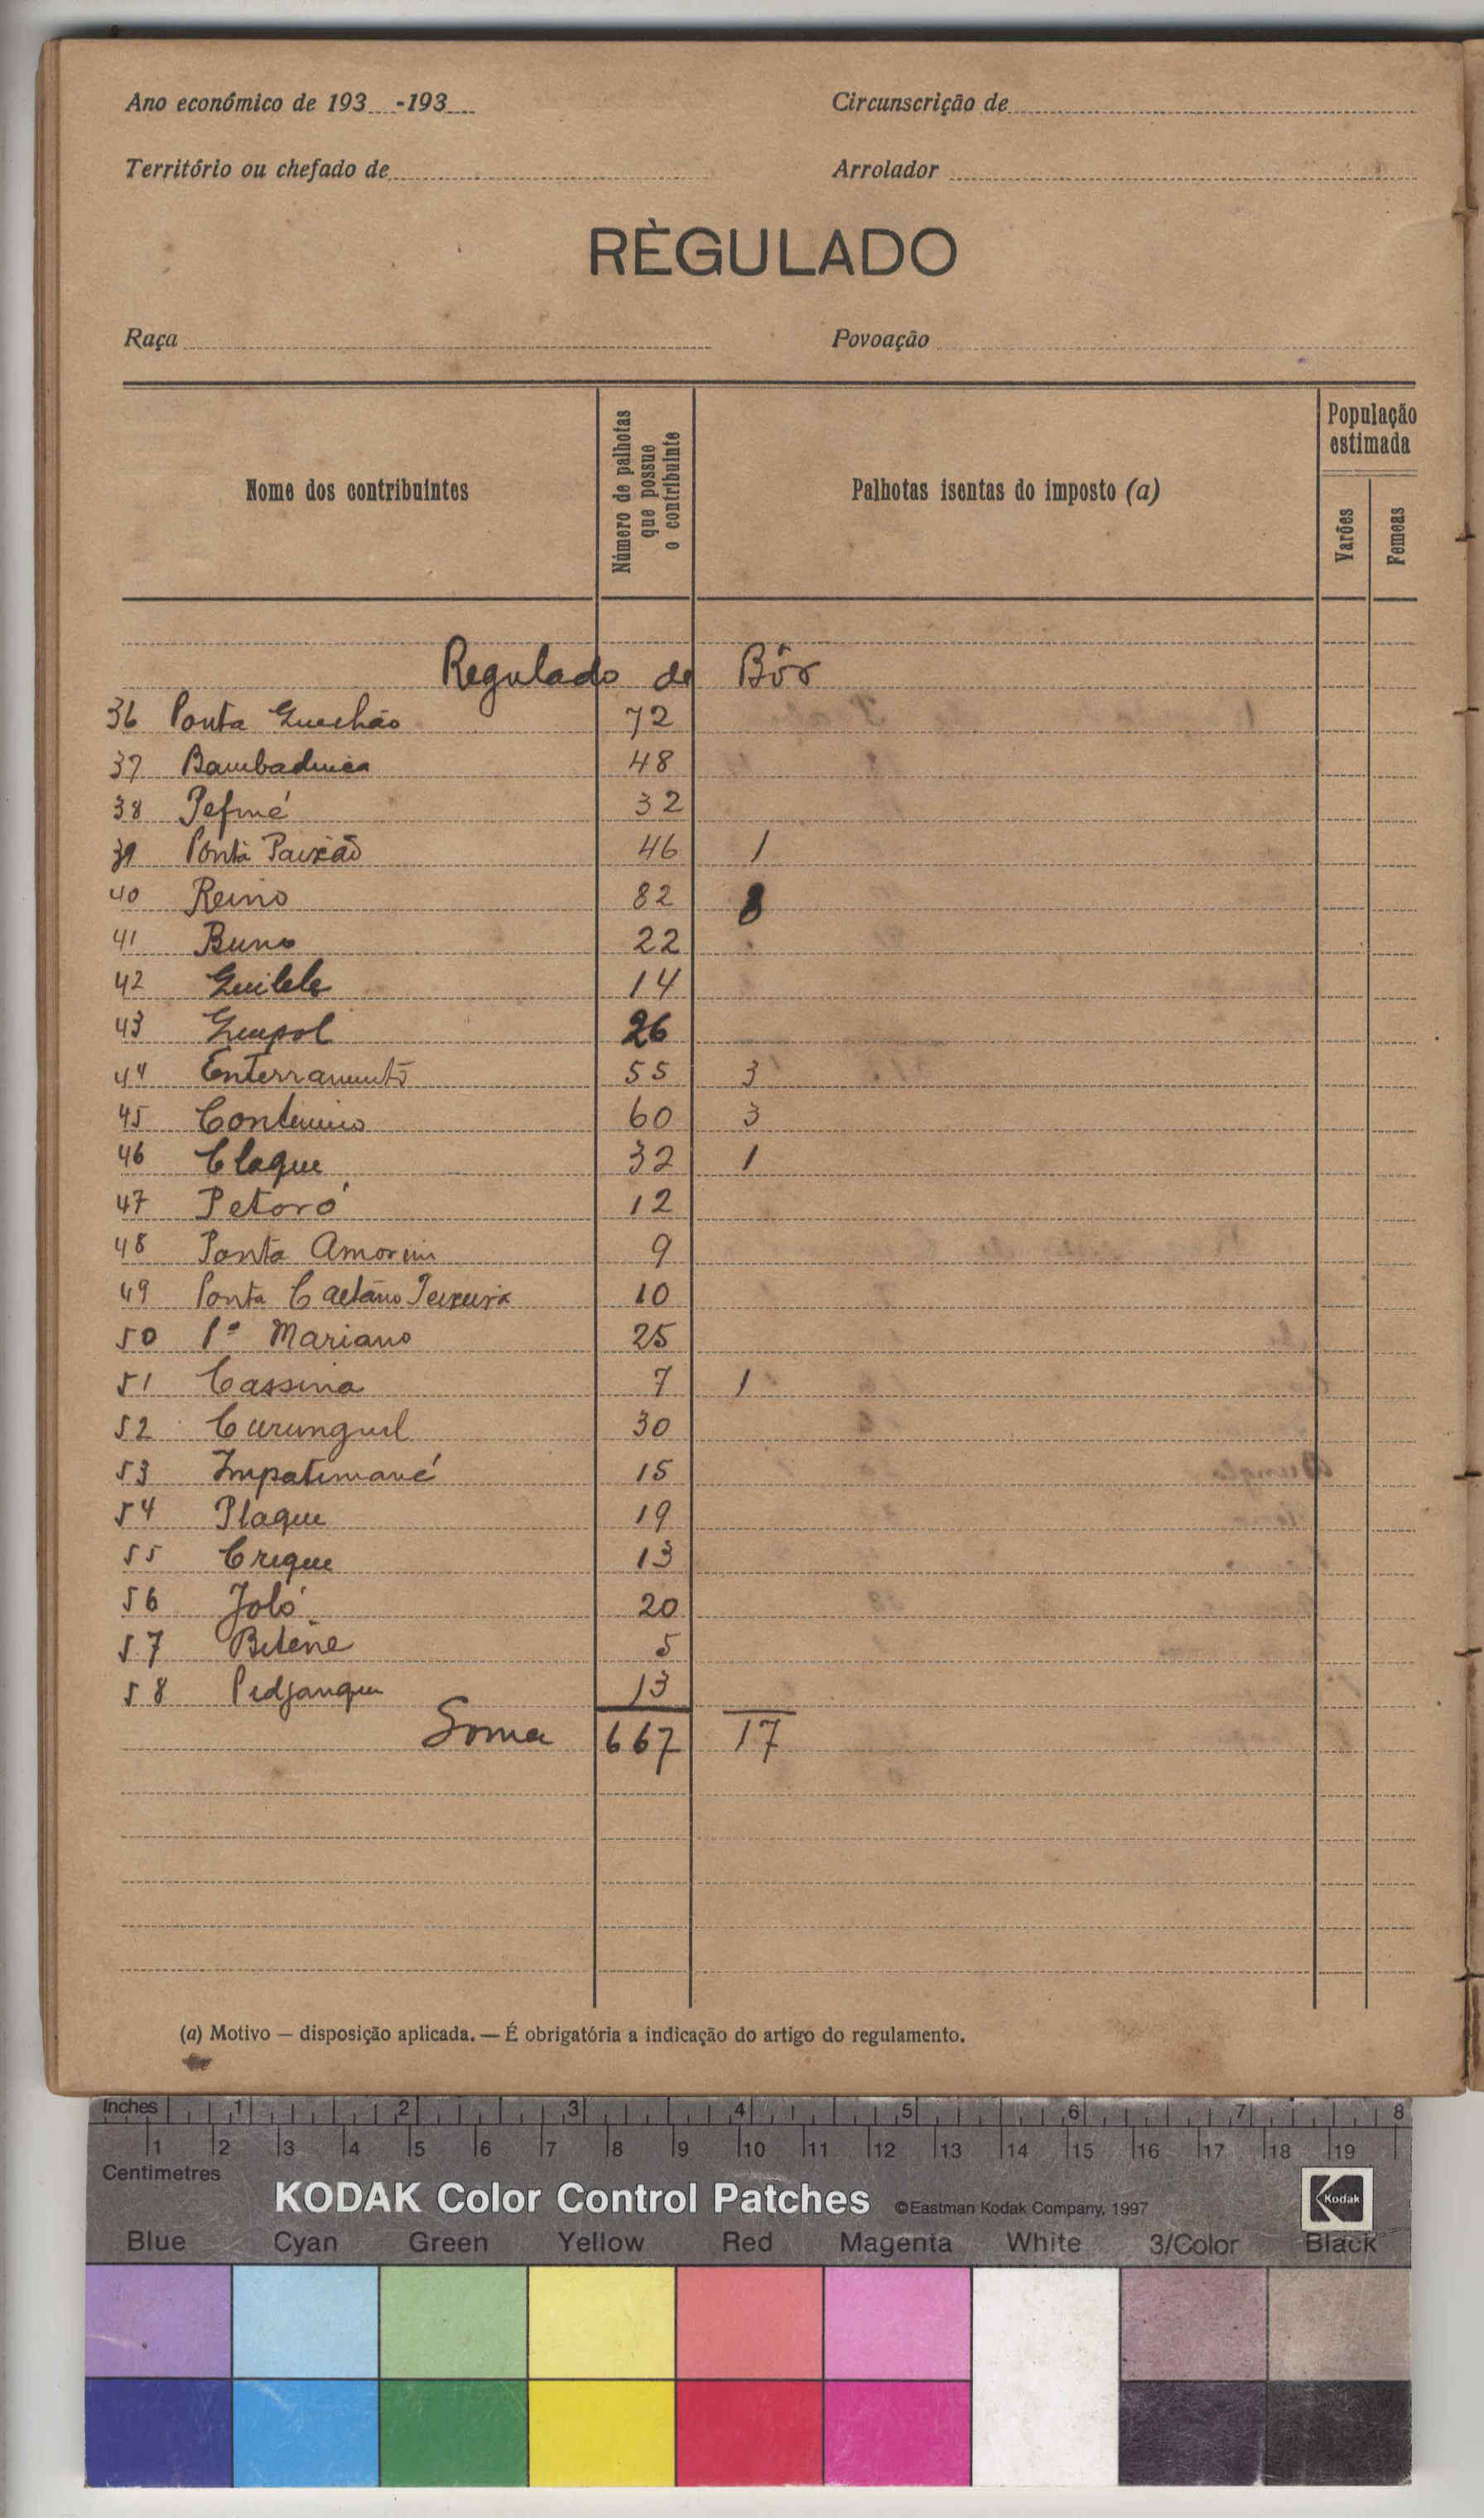 Ano económico de 193 -193
Circunscrição de
Território ou chefado de
Arrolador
RÈGULADO
Raça
Povoação
Nome dos contribuintes
Número de palhotas que possue o contribuinte
Palhotas isentas do imposto (a)
População estimada
Varões
Femeas
Regulado de Bôr
36 Ponta 72
37 Bambadinca 48
38 Pefiné 32
39 Ponta Paixão 46 1
40 Reino 82 8
41 Buno 22
42 14
43 26
44 Enterramento 55 3
45 Contumino 60 3
46 Claque 32 1
47 Petoró 12
48 Ponta Amorim 9
49 Ponta Caetano Teixeira 10
50 Pª Mariano 25
51 Cassina 7 1
52 30
53 15
54 Plaque 19
55 Crique 13
56 Joló 20
57 Biténe 5
58 13
Soma 667 17
(a) Motivo — disposição aplicada. — É obrigatória a indicação do artigo do regulamento.
Inches 1 2 3 4 5 6 7 8
1 2 3 4 5 6 7 8 9 10 11 12 13 14 15 16 17 18 19
Centimetres
KODAK Color Control Patches ©Eastman Kodak Company, 1997 Kodak
Blue Cyan Green Yellow Red Magenta White 3/Color Black